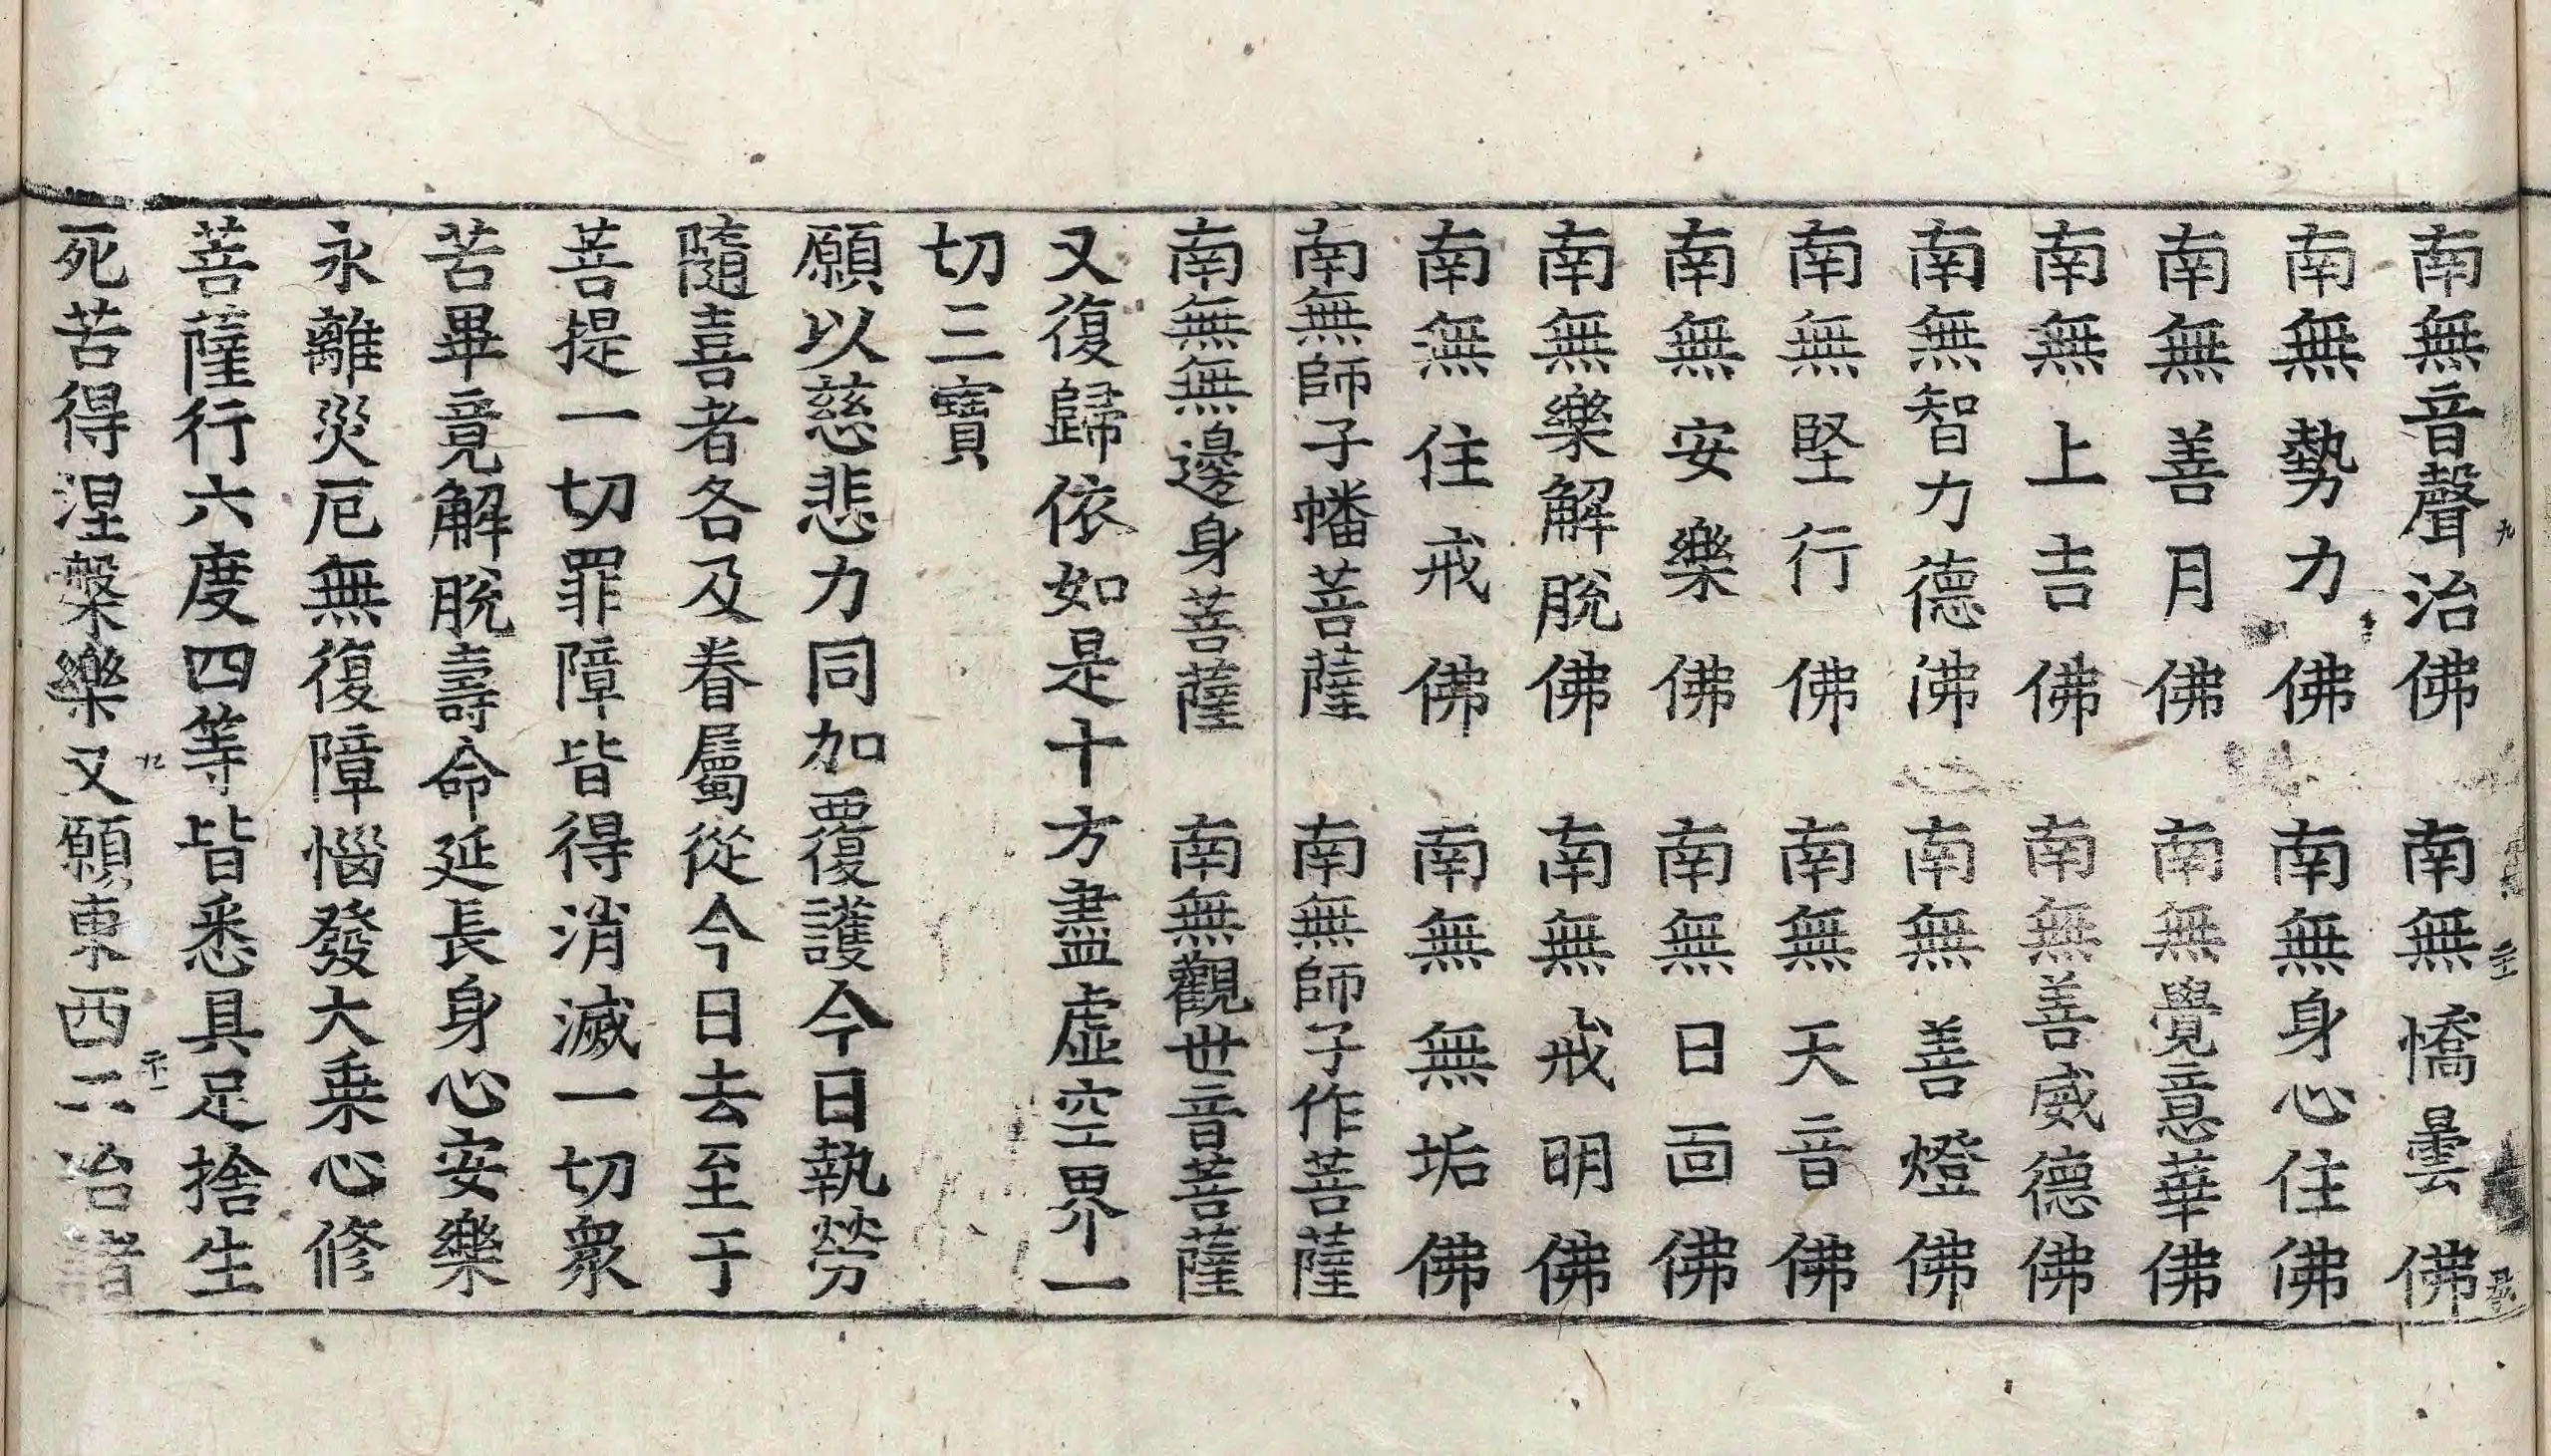 南無音聲治佛　南無憍曇佛
南無勢力佛　南無身心住佛
南無善月佛　南無覺意華佛
南無上吉佛　南無善威德佛
南無智力德佛　南無善燈佛
南無堅行佛　南無天音佛
南無安樂佛　南無日面佛
南無樂解脫佛　南無戒明佛
南無住戒佛　南無無垢佛
南無師子幡菩薩　南無師子作菩薩
南無無邊身菩薩　南無觀世音菩薩
又復歸依如是十方盡虛空界一
切三寶
願以慈悲力同加覆護今日執勞
隨喜者各及眷屬從今日去至于
菩提一切罪障皆得消滅一切衆
苦畢竟解脫壽命延長身心安樂
永離災厄無復障惱發大乘心修
菩薩行六度四等皆悉具足捨生
死苦得涅槃樂又願東西二冶諸